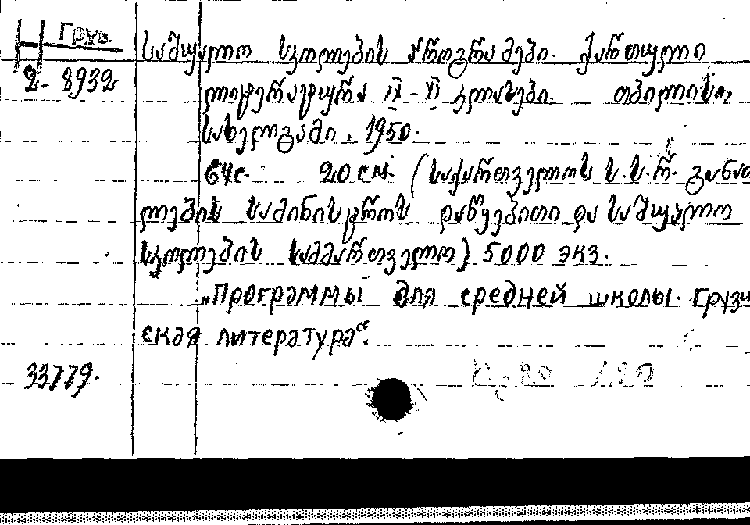 Груз.
საშუალო სკოლების პროგრამები. ქართული
2-8932
ლიტერატურა II - VI კლასები. თბილისი,
სახელგამი, 1950.
64c. 20 см. (საქართველოს ს.ს.რ. განათ
ლების სამინისტროს დაწყებითი და საშუალო
სკოლების სამმართველო) 5000 экз.
„Программы для средней школы. Грузи
ская литература“.
33779.